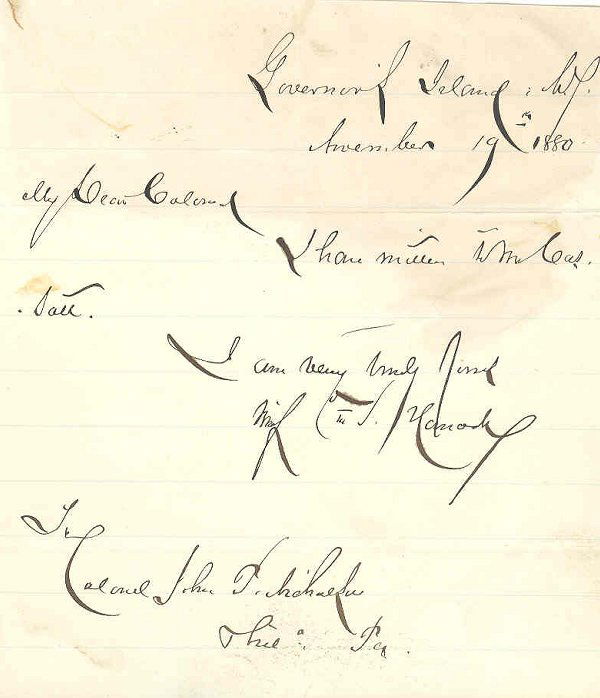 Governor's Island, N.Y.
November 19th 1880
My Dear Colonel
I have written to Mr Cas.
. satt.
I am very truly yours
Winf'd S. Hancock
To
Colonel John P. Nicholson
Phil a. Pa.